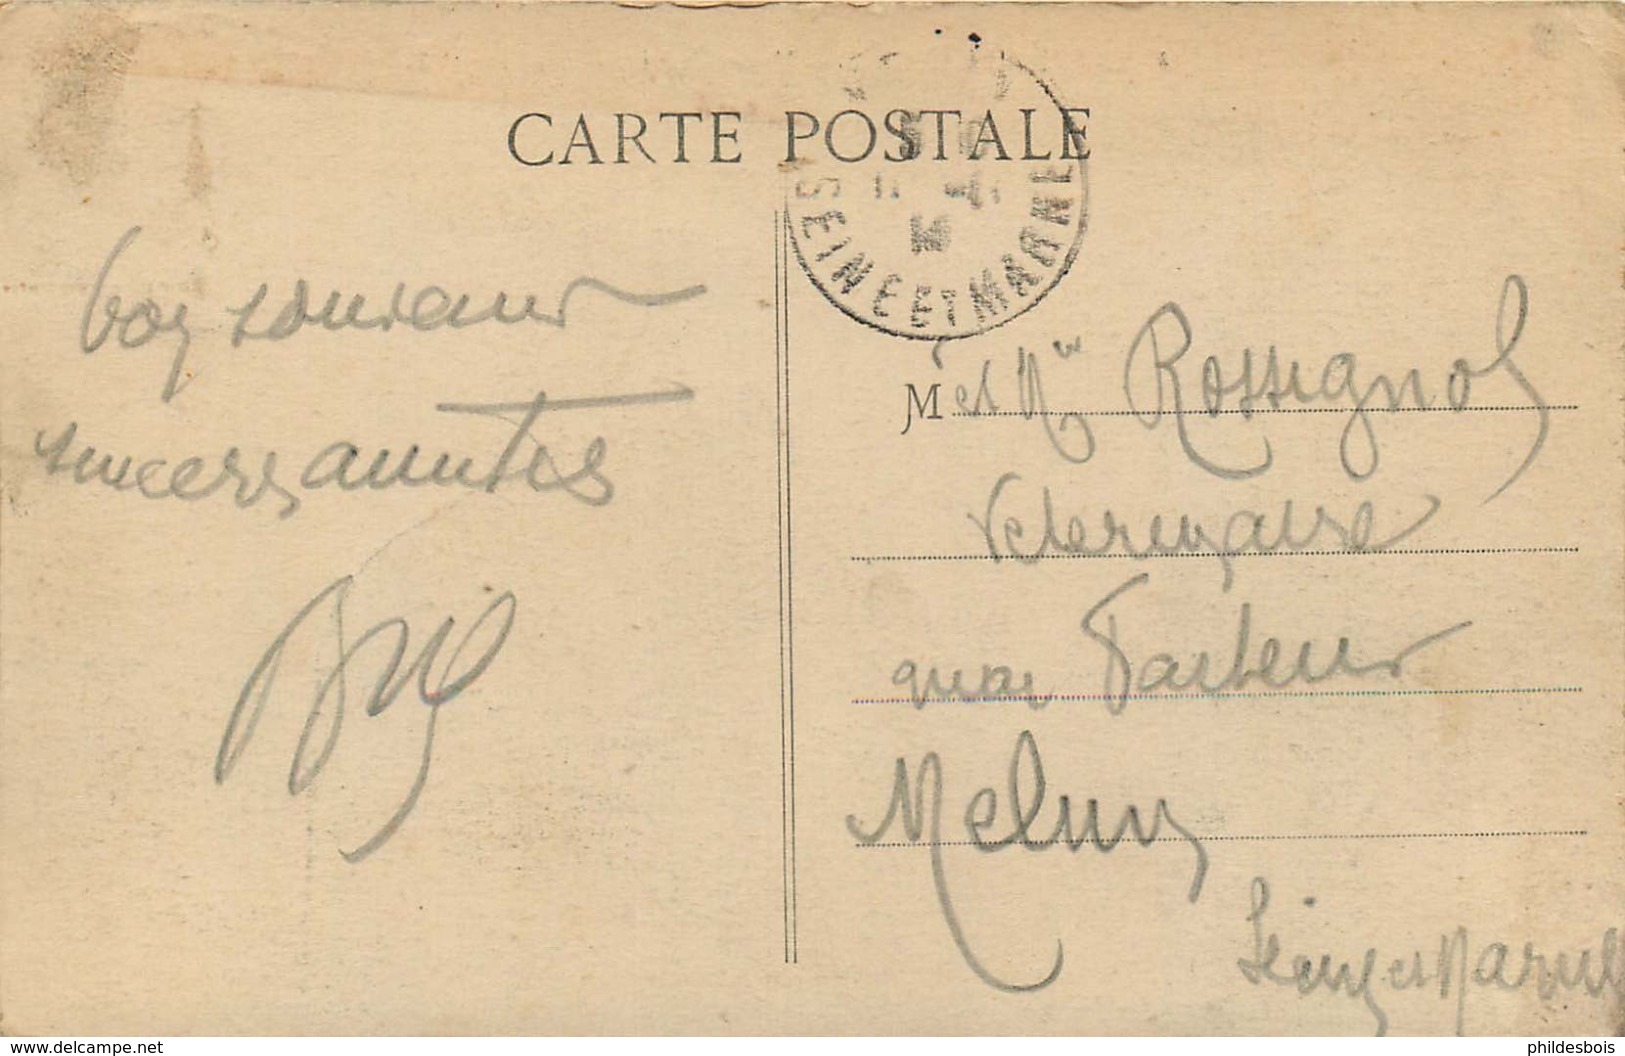 CARTE POSTALE
SEINE ET MARNE
bon souvenir
sinceres amitiés
M et Mme Rossignol
Veterinaire
quai Pasteur
Melun
Seine et Marne
www.delcampe.net
phildesbois